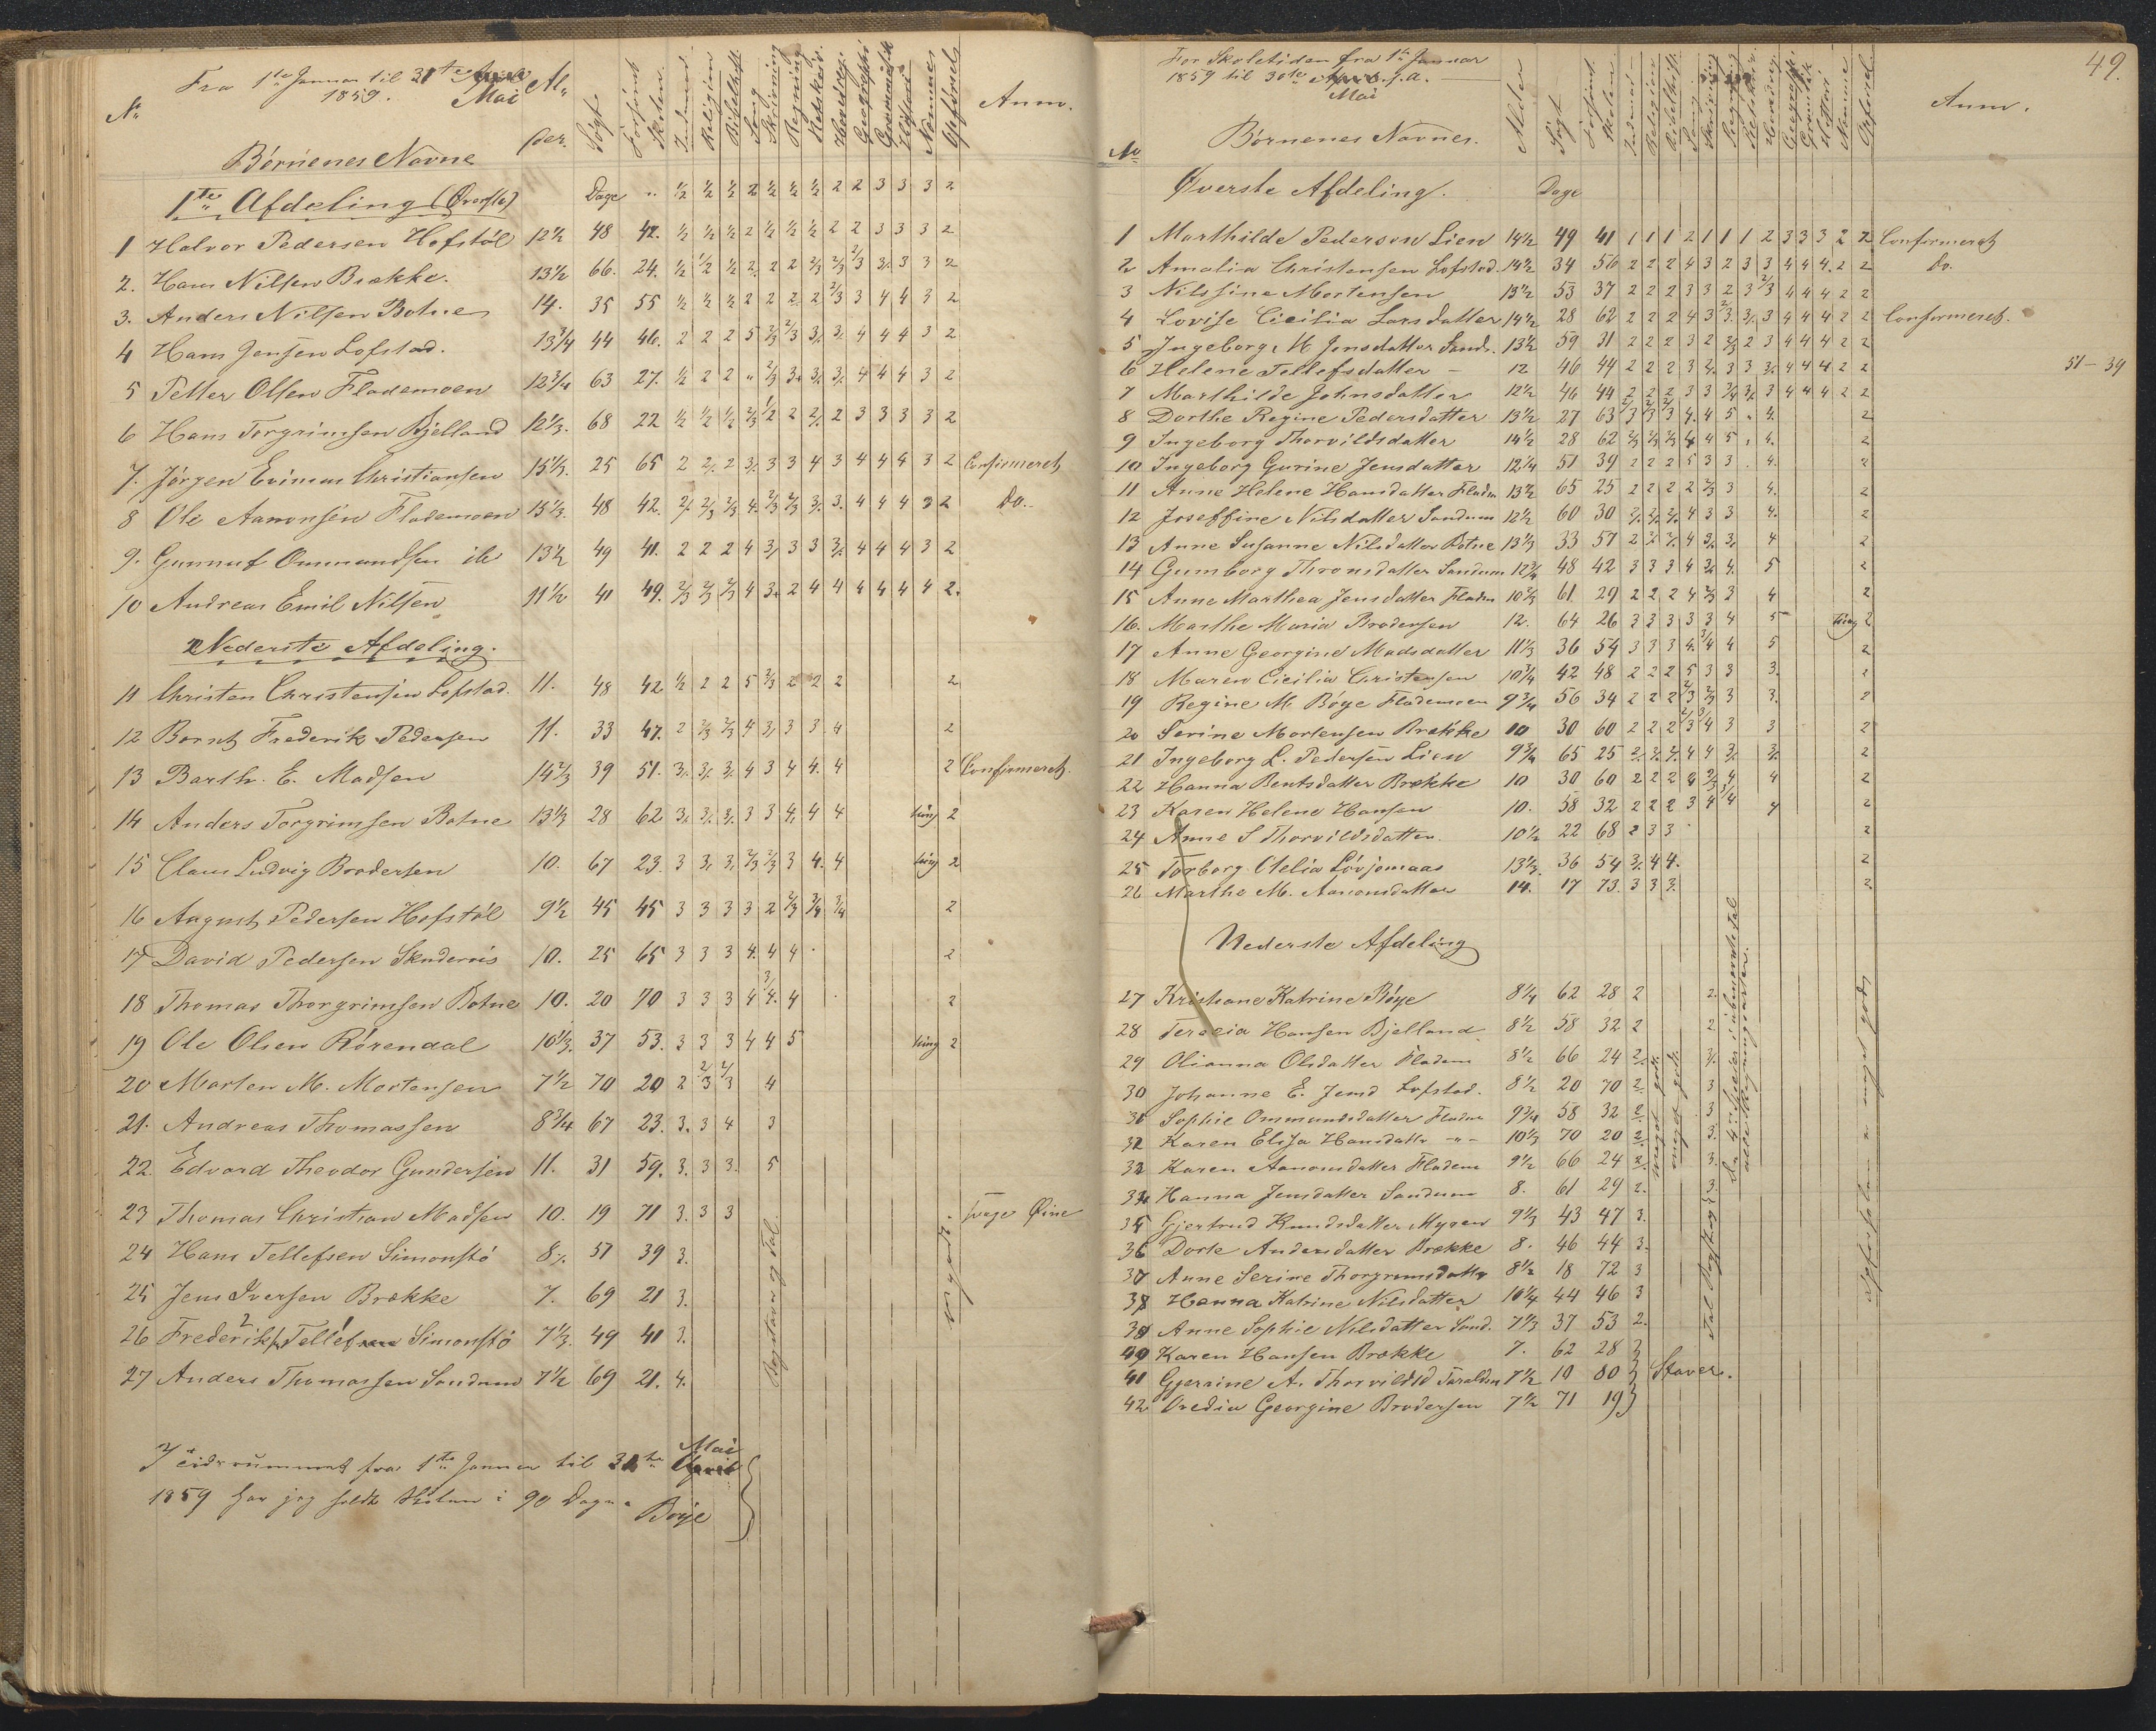 Fra 1te Januar til 31te Mai
1859.
No
Børnenes Navne
Al-
der.
Søgt
Forsømt
Skolen.
Religion
Sang
Skrivning
Regning
Geografi
Historie
Opførsel
Anm.
1te Afdeling (Øverste) Dage " ½ ½ ½ 2 ½ ½ ½ 2 2 3 3 3 2
1 Halvor Pedersen Hofstøl 12½ 48 42. ½ ½ ½ 2 ½ ½ ½ 2 2 3 3 3 2
2. Hans Nilsen Brække. 13½ 66. 24. ½ ½ ½ 2. 2 2 2/3 2/3 2/3 3. 3 3 2
3. Anders Nilsen Botne 14. 35 55 ½ ½ ½ 2 2 2 2 2/3 3 4 4 3 2
4 Hans Jensen Lofstad. 13¾ 44 46. 2 2 2 5 2/3 2/3 3. 3. 4 4 4 3 2
5 Petter Olsen Flademoen 12¾ 63 27. ½ 2 2 " 2/3 3. 3. 3. 4 4 4 3 2
6 Hans Torgrimsen Bjelland 12⅓. 68 22 ½ ½ ½ 2/3 ½ 2 2. 2 3 3 3 3 2
7. Jørgen Evinius Christiansen 15⅓. 25 65 2 2. 2 3. 3 3 4 3 4 4 4 3 2 Confirmeret
8 Ole Aanonsen Flademoen 15⅓. 48 42. 2/3 2/3 2/3 4. 2/3 2/3 3. 3. 4 4 4 3 2 Do..
9. Gunnuf Ommundsen ib 13½ 49 41. 2 2 2 4 3. 3 3 3. 4 4 4 3 2
10 Andreas Emil Nilsen 11½ 41 49. 2/3 2/3 2/3 4 3. 2 4 4 4 4 4 4 2.
Nederste Afdeling.
11 Christen Christensen Lofstad. 11. 48 42 ½ 2 2 5 2/3 2 2 2 2
12 Bernt Frederik Pedersen 11. 33 47. 2 2/3 2/3 4 3. 3 3 4 2
13 Barth. E. Madsen 14⅔ 39 51. 3. 3. 3. 4 3 4 4. 4 2 Confirmeret.
14 Anders Torgrimsen Botne 13⅓ 28 62 3. 3. 3. 3 3 4. 4 4 2
15 Claus Ludvig Brodersen 10. 67 23. 3 3. 3. 2/3 2/3 3 4. 4 2
16 August Pedersen Hofstøl 9½ 45 45 3 3 3 3 2 2/3 ¾ ¾ 2
17 David Pedersen 10. 25 65 3 3 3 4. 4 4 2
18 Thomas Thorgrimsen Botne 10. 20 70 3 3 3 4 ¾. 4 2
19 Ole Olsen Rørendal 10⅓. 37 53. 3 3 3 4 4 5 2
20 Morten M. Mortensen 7½ 70 20 2 2/3 2/3 4
21. Andreas Thomassen 8¾ 67 23. 3. 3 4 3
22. Edvard Theodor Gundersen 11. 31 59. 3. 3 3. 5
23 Thomas Christian Madsen 10. 19 71 3. 3 3 svage Øine
24 Hans Tellefsen Simonstø 8½ 51 39 3.
25 Jens Iversen Brække 7. 69 21 3.
26 Frederik Tellefsen Simonstø 7⅓. 49 41 3.
27 Anders Thomassen Sandum 7½ 69 21. 4.
Bogstaver og Tal.
I Tidsrummet fra 1te Januar til 31te Mai
1859 har jeg holdt Skolen i 90 Dage.
Bøye
49.
For Skoletiden fra 1te Januar
1859 til 30te Mai s. a.
No
Børnenes Navnes.
Alder
Søgt
Forsømt
Skolen.
Religion
Anm.
Øverste Afdeling. Dage
1 Marthilde Pedersen Lien 14½ 49 41 1 1 1 2 1 1 1 2 3 3 3 2 2 Confirmeret
2 Amalia Christensen Lofstad. 14½ 34 56 2 2 2 4 3 2 3 3 4 4 4. 2 2 Do.
3 Nilssine Mortensen 13½ 53 37 2 2 2 3 3 2 3 2/3 4 4 4 2 2
4 Lovise Cicilia Larsdatter 14½ 28 62 2 2 2 4 3 2/3 3. 3 4 4 4 2 2 Confirmeret.
5 Ingeborg M Jensdatter Sand. 13½ 59 31 2 2 2 3 2 2/3 2 3 4 4 4 2 2
6 Helene Tellefsdatter - 12 46 44 2 2 2 3 2. 3 3 3. 4 4 4 2 2
51-39
7 Marthilde Johnsdatter 12½ 46 44 2 2 2 3 3 ¾ 3. 3 4 4 4 2 2
8 Dorthe Regine Pedersdatter 13½ 27 63 2/3 2/3 2/3 4. 4 5 . 4. 2
9 Ingeborg Thorvildsdatter 14½ 28 62 2/3 2/3 2/3 4 4 5 . 4. 2
10 Ingeborg Gurine Jensdatter 12¼ 51 39 2 2 2 5 3 3 . 4. 2
11 Anne Helene Hansdatter Fladm 13½ 65 25 2 2 2 2 2/3 3 4. 2
12 Joseffine Nilsdatter Sandum 12½ 60 30 2. 2. 2. 4 3 3 4. 2
13 Anne Susanne Nilsdatter Botne 13⅓ 33 57 2 2. 2. 4 3. 3. 4 2
14 Gumborg Thronsdatter Sandum 12¾ 48 42 3 3 3 4 3. 4. 5 2
15 Anne Marthea Jensdatter Fladm 10⅔ 61 29 2 2 2 4 2/3 3 4 2
16. Marthe Maria Brodersen 12. 64 26 3 3 3 3 3 4 5 2
17 Anne Georgine Madsdatter 11⅓ 36 54 3 3 3 4. ¾ 4 5 2
18 Maren Cicilia Christensen 10¾ 42 48 2 2 2 5 3 3 3. 2
19 Regine M. Bøye Flademoen 9¾ 56 34 2 2 2 2/3 2/3 3 3. 2
20 Serine Mortensen Brække 10 30 60 2 2 2 2/3 ¾ 3 3 2
21 Ingeborg L. Pedersen Lien 9¾ 65 25 2. 2. 2. 4 4 3. 3. 2
22 Hanna Bentsdatter Brække 10 30 60 2 2 2 4 2/3 4 4 2
23 Karen Helene Hansen 10. 58 32 2 2 2 3 4 ¾ 4 2
24 Anne S Thorvildsdatter 10½ 22 68 2 3 3 2
25 Torborg Otelia Løvjomaas 13⅓. 36 54 3. 4 4. 2
26 Marthe M. Aanonsdatter 14. 17 73. 3 3 3. 2
Nederste Afdeling
27 Kristiane Katrine Bøye 8¼ 62 28 2 2.
28 Teresia Hansen Bjelland 8½ 58 32 2 2
29 Olianna Olsdatter Fladem 8½ 66 24 2. 3.
30 Johanne E. Jensd Lofstad. 8½ 20 70 2. 3
31 Sophie Ommundsdatter Fladm 9¾ 58 32 2. 3
32 Karen Elisa Hansdatter -"- 10⅓ 70 20 2. 3.
33 Karen Aanonsdatter Fladem 9½ 66 24 2. 3.
34 Hanna Jensdatter Sandum 8. 61 29 2. 3.
35 Gjertrud Knudsdatter Myren 9⅓ 43 47 3.
36 Dorte Andersdatter Brække 8. 46 44 3.
37 Anne Serine Thorgrimsdatter 8½ 18 72 3
38 Hanna Katrine Nilsdatter 10¼ 44 46 3
39 Anne Sophie Nilsdatter Sand. 7⅓ 37 53 2.
40 Karen Hansen Brække 7. 62 28 3
41 Gjeraine A. Thorvildsd Taraldsen 7½ 10 80 } Staver.
42 Ovedia Georgine Brodersen 7½ 71 19 }
meget godt
meget godt.
Tal Bogstaver
Opførselen er meget god